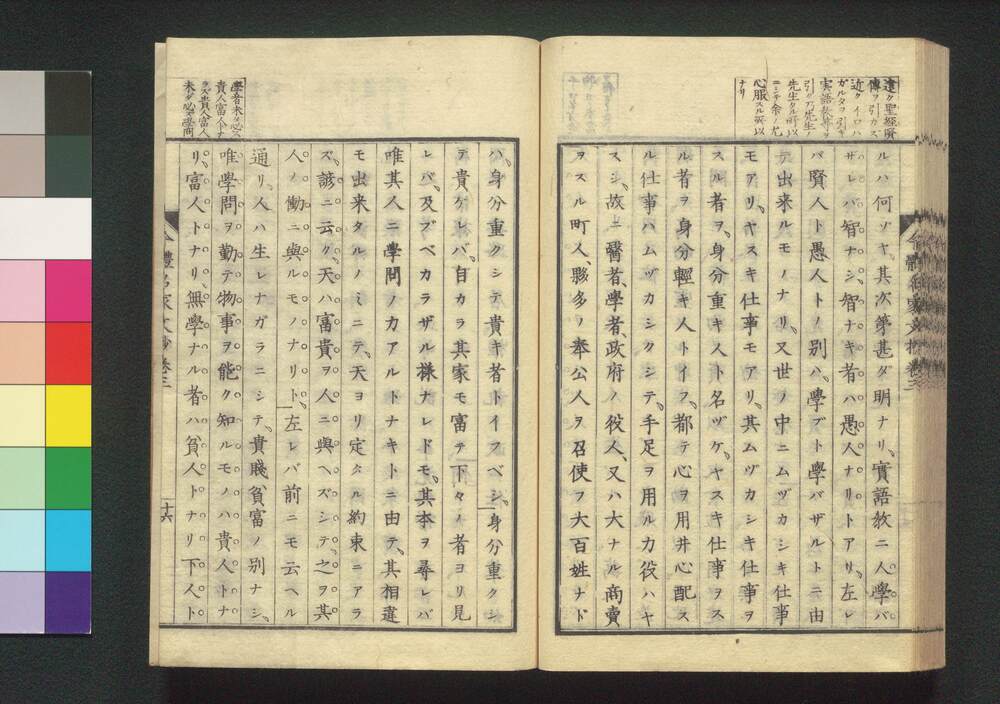 遠ク聖經賢
傳ヲ引カズ
近クイロハ
ガルタヲ引キ
実語教等ヲ
引ク乃先生ノ
先生タル所以
ニシテ余ノ尤
心服スル所以
ナリ
ルハ何ゾヤ、其次第甚ダ明ナリ、實語教ニ人學バ
ザレバ智ナシ、智ナキ者ハ愚人ナリトアリ、左レ
バ賢人ト愚人トノ別ハ、學ブト學バザルトニ由
テ出来ルモノナリ、又世ノ中ニムヅカシキ仕事
モアリ、ヤスキ仕事モアリ、其ムヅカシキ仕事ヲ
スル者ヲ、身分重キ人ト名ヅケ、ヤスキ仕事ヲス
ル者ヲ身分輕キ人トイフ、都テ心ヲ用井心配ス
ル仕事ハムヅカシクシテ、手足ヲ用ル力役ハヤ
スシ、故ニ醫者、學者、政府ノ役人、又ハ大ナル商賣
ヲスル町人、夥多ノ奉公人ヲ召使フ大百姓ナド
學者未ダ必ズ
貴人富人ナ
ラズ貴人富人
未ダ必學問
ハ、身分重クシテ貴キ者トイフベシ、身分重クシ
テ貴ケレバ、自カラ其家モ富テ、下々ノ者ヨリ見
レバ、及ブベカラザル様ナレドモ、其本ヲ尋レバ
唯其人ニ學問ノカアルトナキトニ由テ、其相違
モ出来タルノミニテ、天ヨリ定タル約束ニアラ
ズ、諺ニ云ク、天ハ富貴ヲ人ニ與ヘズシテ、之ヲ其
人ノ働ニ與ルモノナリト、左レバ前ニモ云ヘル
通リ、人ハ生レナガラニシテ、貴賤貧富ノ別ナシ、
唯學問ヲ勤テ物事ヲ能ク知ルモノハ貴人トナ
リ、富人トナリ、無學ナル者ハ貧人トナリ下人ト
今體名家文抄卷三
十六